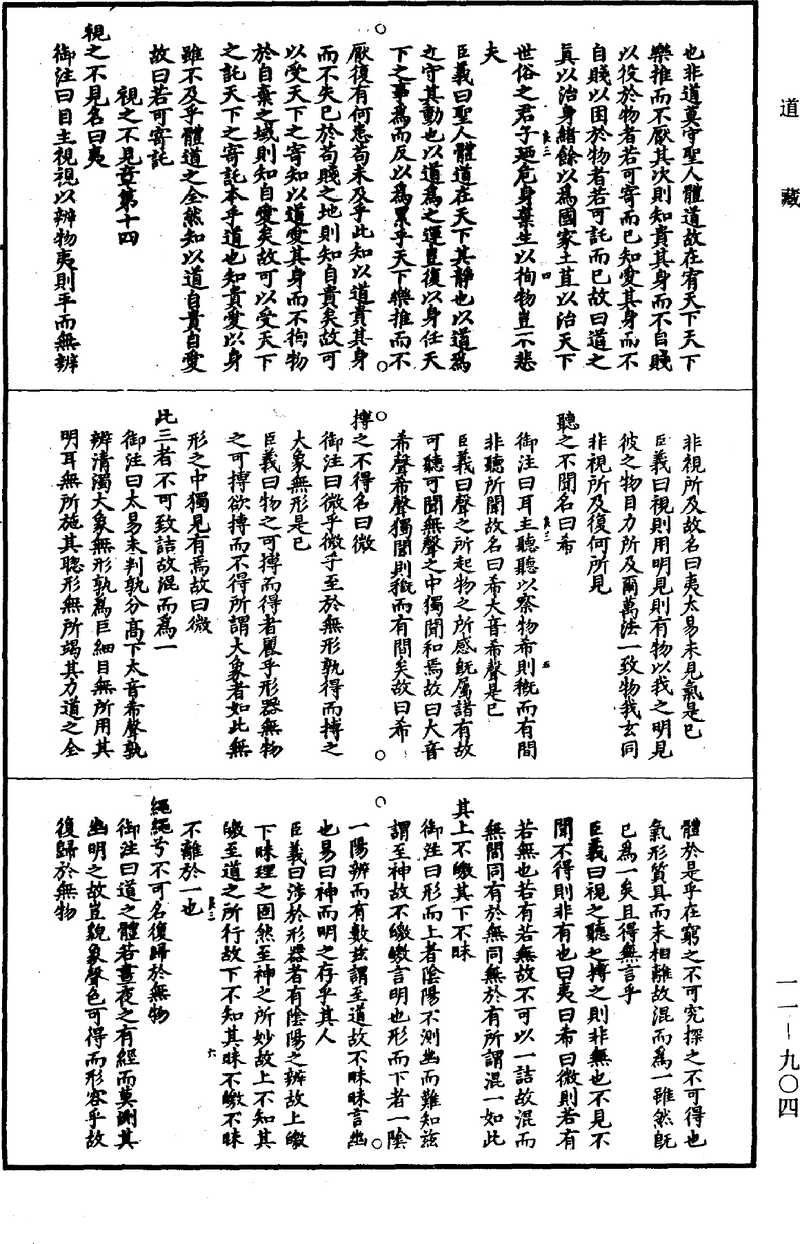 道藏
也非道真守聖人體道故在宥天下天下
樂推而不厭其次則知貴其身而不自賤
以役於物者若可寄而已知愛其身而不
自賤以困於物者若可託而已故曰道之
真以治身緒餘以為國家土苴以治天下
世俗之君子迺危身棄生以徇物豈不悲
夫
臣義曰聖人體道在天下其靜也以道為
之守其動也以道為之運豈復以身任天
下之事為而反以為累乎天下樂推而不
厭復有何患苟未及乎此知以道貴其身
而不失已於苟賤之地則知自貴矣故可
以受天下之寄知以道愛其身而不徇物
於自棄之域則知自愛矣故可以受天下
之託天下之寄託本乎道也知貴愛以身
雖不及乎體道之全然知以道自貴自愛
故曰若可寄託
視之不見章第十四
視之不見名曰夷
御注曰目主視視以辨物夷則平而無辨
非視所及故名曰夷太易未見氣是已
臣義曰視則用明見則有物以我之明見
彼之物目力所及爾萬法一致物我玄同
非視所及復何所見
聽之不聞名曰希
御注曰耳主聽聽以察物希則概而有間
非聽所聞故名曰希大音希聲是已
臣義曰聲之所起物之所感既屬諸有故
可聽可聞無聲之中獨聞和焉故曰大音
希聲希聲獨聞則概而有間矣故曰希
搏之不得名曰微
御注曰微乎微乎至於無形孰得而搏之
大象無形是已
臣義曰物之可搏而得者麗乎形器無物
之可搏欲搏而不得所謂大象者如此無
形之中獨見有焉故曰微
此三者不可致詰故混而為一
御注曰太易未判孰分高下太音希聲孰
辨清濁大象無形孰為巨細目無所用其
明耳無所施其聰形無所竭其力道之全
體於是乎在窮之不可究探之不可得也
氣形質具而未相離故混而為一雖然既
已為一矣且得無言乎
臣義曰視之聽之搏之則非無也不見不
聞不得則非有也曰夷曰希曰微則若有
若無也若有若無故不可以一詰故混而
無間同有於無同無於有所謂混一如此
其上不皦其下不昧
御注曰形而上者陰陽不測幽而難知玆
謂至神故不皦皦言明也形而下者一陰
一陽辨而有數玆謂至道故不昧昧言幽
也易曰神而明之存乎其人
臣義曰涉於形器者有陰陽之辨故上皦
下昧理之固然至神之所妙故上不知其
皦至道之所行故下不知其昧不皦不昧
不離於一也
繩繩兮不可名復歸於無物
御注曰道之體若晝夜之有經而莫測其
幽明之故豈貌象聲色可得而形容乎故
復歸於無物
一一－九〇四